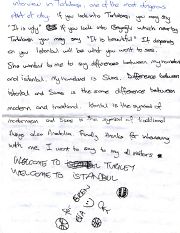 interview in Tarlabaşı, one of the most dangerous
part of city. If you look into Tarlabaşı you may say
"It is ugly" If you look into Beyoğlu which nearby
Tarlabaşı you may say "It is beautiful" It depends
on you. Istanbul will be what you want to see.
She wanted to me to say differences between my homeland
and istanbul. My homeland is Sivas. Difference between
Istanbul and Sivas is the same difference between
modern and traditional. Istanbul is the symbol of
modernism and Sivas is the symbol of traditional
things also Anatolia. Finally thanks for interviewing
with me. I want to say to all visitors
WELCOME TO TURKEY
WELCOME TO ISTANBUL